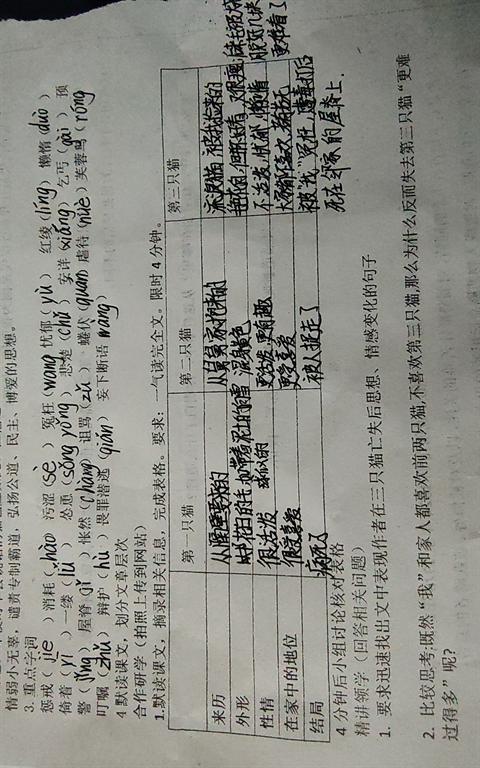 情弱小无辜，谴责专制霸道，弘扬公道、民主、博爱的思想。
3. 重点字词
惩戒（jie）消耗（hào）污涩（sè）冤枉（wang）忧郁（yù）红绫（líng）懒惰（duò）
倚着（yǐ）一缕（lǚ）怂恿（sǒng yǒng）悲楚（chǔ）安详（xiáng）乞丐（gài）预
警（jǐng）屋脊（jǐ）怅然（chàng）诅骂（zǔ）蜷伏（quán）虐待（nüè）芙蓉鸟（róng）
叮嘱（zhǔ）辩护（hù）畏罪潜逃（qián）妄下断语 wàng
4 默读课文，划分文章层次
合作研学（拍照上传到网站）
1. 默读课文，摘录相关信息，完成表格。要求：一气读完全文。限时 4 分钟。
第一只猫 第二只猫 第三只猫
来历 从隔壁要来的 从舅舅家抱来的
外形 花白的毛 如带着泥土的白雪 浑身黄色
性情 很活泼 更活泼 更有趣
在家中的地位 很受喜爱 更受喜爱
结局 病死了 被人捉走了 死在邻家的屋脊上．
更难看了
4 分钟后小组讨论核对表格
精讲领学（回答相关问题）
1. 要求迅速找出文中表现作者在三只猫亡失后思想、情感变化的句子
2. 比较思考：既然“我”和家人都喜欢前两只猫，不喜欢第三只猫，那么为什么反而失去第三只猫“更难
过得多”呢？